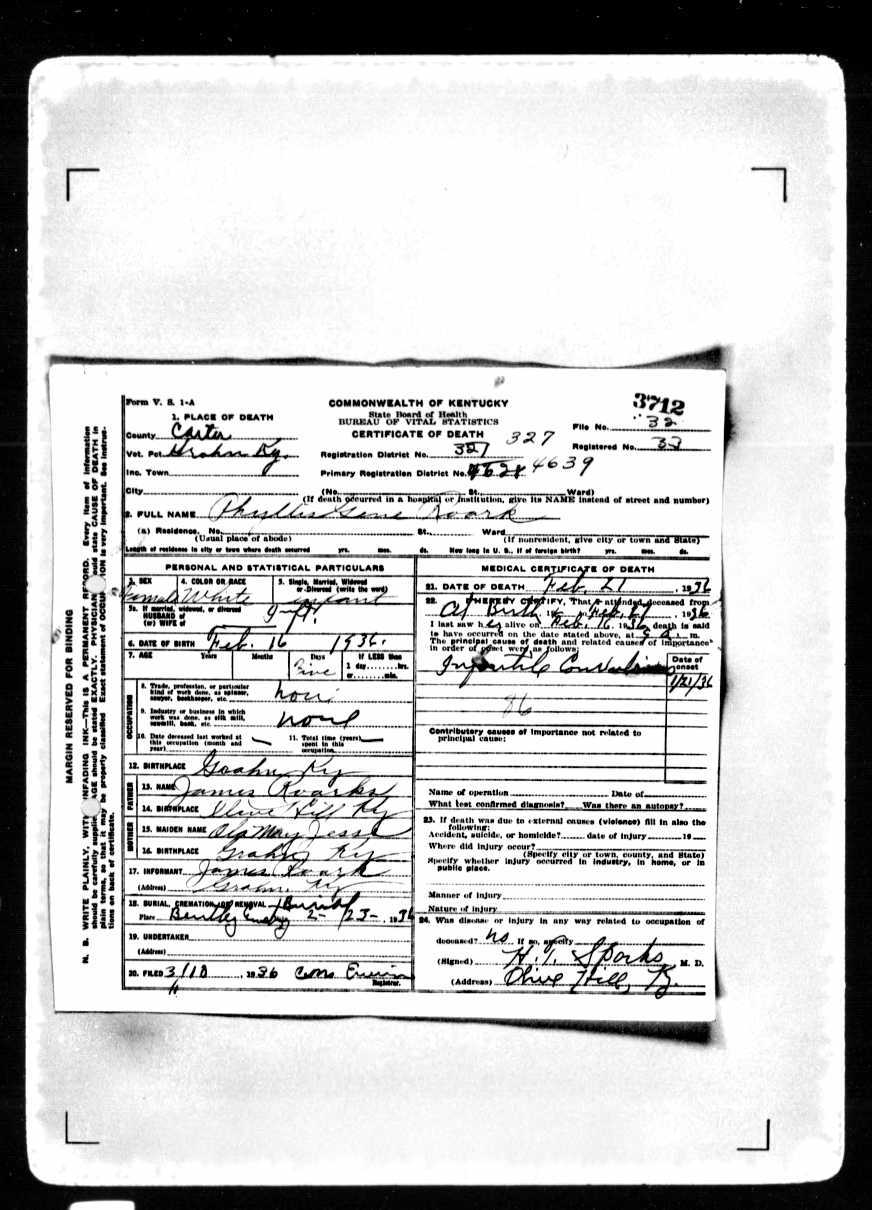 Form V. S. 1-A
COMMONWEALTH OF KENTUCKY
3712
State Board of Health
BUREAU OF VITAL STATISTICS
CERTIFICATE OF DEATH
File No. 32
Registered No. 33
1. PLACE OF DEATH
County Carter
Vot. Pct. Grahn Ky.
327
Registration District No. 327
Inc. Town
Primary Registration District No. 4628 4639
City (No. St. Ward)
(If death occurred in a hospital or institution, give its NAME instead of street and number)
2. FULL NAME Phyllis Gene Roark
(a) Residence. No. St., Ward
(Usual place of abode) (If nonresident, give city or town and State)
Length of residence in city or town where death occurred yrs. mos. ds. How long in U. S., if of foreign birth? yrs. mos. ds.
PERSONAL AND STATISTICAL PARTICULARS
3. SEX 4. COLOR OR RACE 5. Single, Married, Widowed or Divorced (write the word)
Female White infant
5a. If married, widowed, or divorced
HUSBAND of
(or) WIFE of
6. DATE OF BIRTH Feb. 16 1936.
7. AGE Years Months Days If LESS than
Five 1 day, hrs.
or min.
OCCUPATION
8. Trade, profession, or particular
kind of work done, as spinner,
sawyer, bookkeeper, etc.
9. Industry or business in which
work was done, as silk mill,
sawmill, bank, etc. none
10. Date deceased last worked at
this occupation (month and
year)
11. Total time (years)
spent in this
occupation
12. BIRTHPLACE Grahn Ky
FATHER
13. NAME James Roarks
14. BIRTHPLACE Olive Hill Ky
MOTHER
15. MAIDEN NAME Ola May Jesse
16. BIRTHPLACE Grahn Ky
17. INFORMANT James Roark
(Address) Grahn, Ky
18. BURIAL, CREMATION OR REMOVAL Burial
Place 2-23-, 1936
19. UNDERTAKER
(Address)
20. FILED 3/10, 1936
Registrar.
MEDICAL CERTIFICATE OF DEATH
21. DATE OF DEATH Feb. 21, 1936
22. I HEREBY CERTIFY, That I attended deceased from
At Birth, 19 to Feb. 21, 1936
I last saw her alive on Feb. 16, 1936 death is said
to have occurred on the date stated above, at m.
The principal cause of death and related causes of importance
in order of onset were as follows:
Date of
onset
Infantile Convulsions
86
Contributory causes of importance not related to
principal cause:
Name of operation Date of
What test confirmed diagnosis? Was there an autopsy?
23. If death was due to external causes (violence) fill in also the
following:
Accident, suicide, or homicide? date of injury 19
Where did injury occur?
(Specify city or town, county, and State)
Specify whether injury occurred in industry, in home, or in
public place.
Manner of injury
Nature of injury
24. Was disease or injury in any way related to occupation of
deceased? No If so, specify
(Signed) H. T. Sparks M. D.
(Address) Olive Hill, Ky.
MARGIN RESERVED FOR BINDING
N. B. WRITE PLAINLY, WITH UNFADING INK—This IS A PERMANENT RECORD. Every item of information
should be carefully supplied. AGE should be stated EXACTLY. PHYSICIANS should state CAUSE OF DEATH in
plain terms, so that it may be properly classified. Exact statement of OCCUPATION is very important. See instruc-
tions on back of certificate.